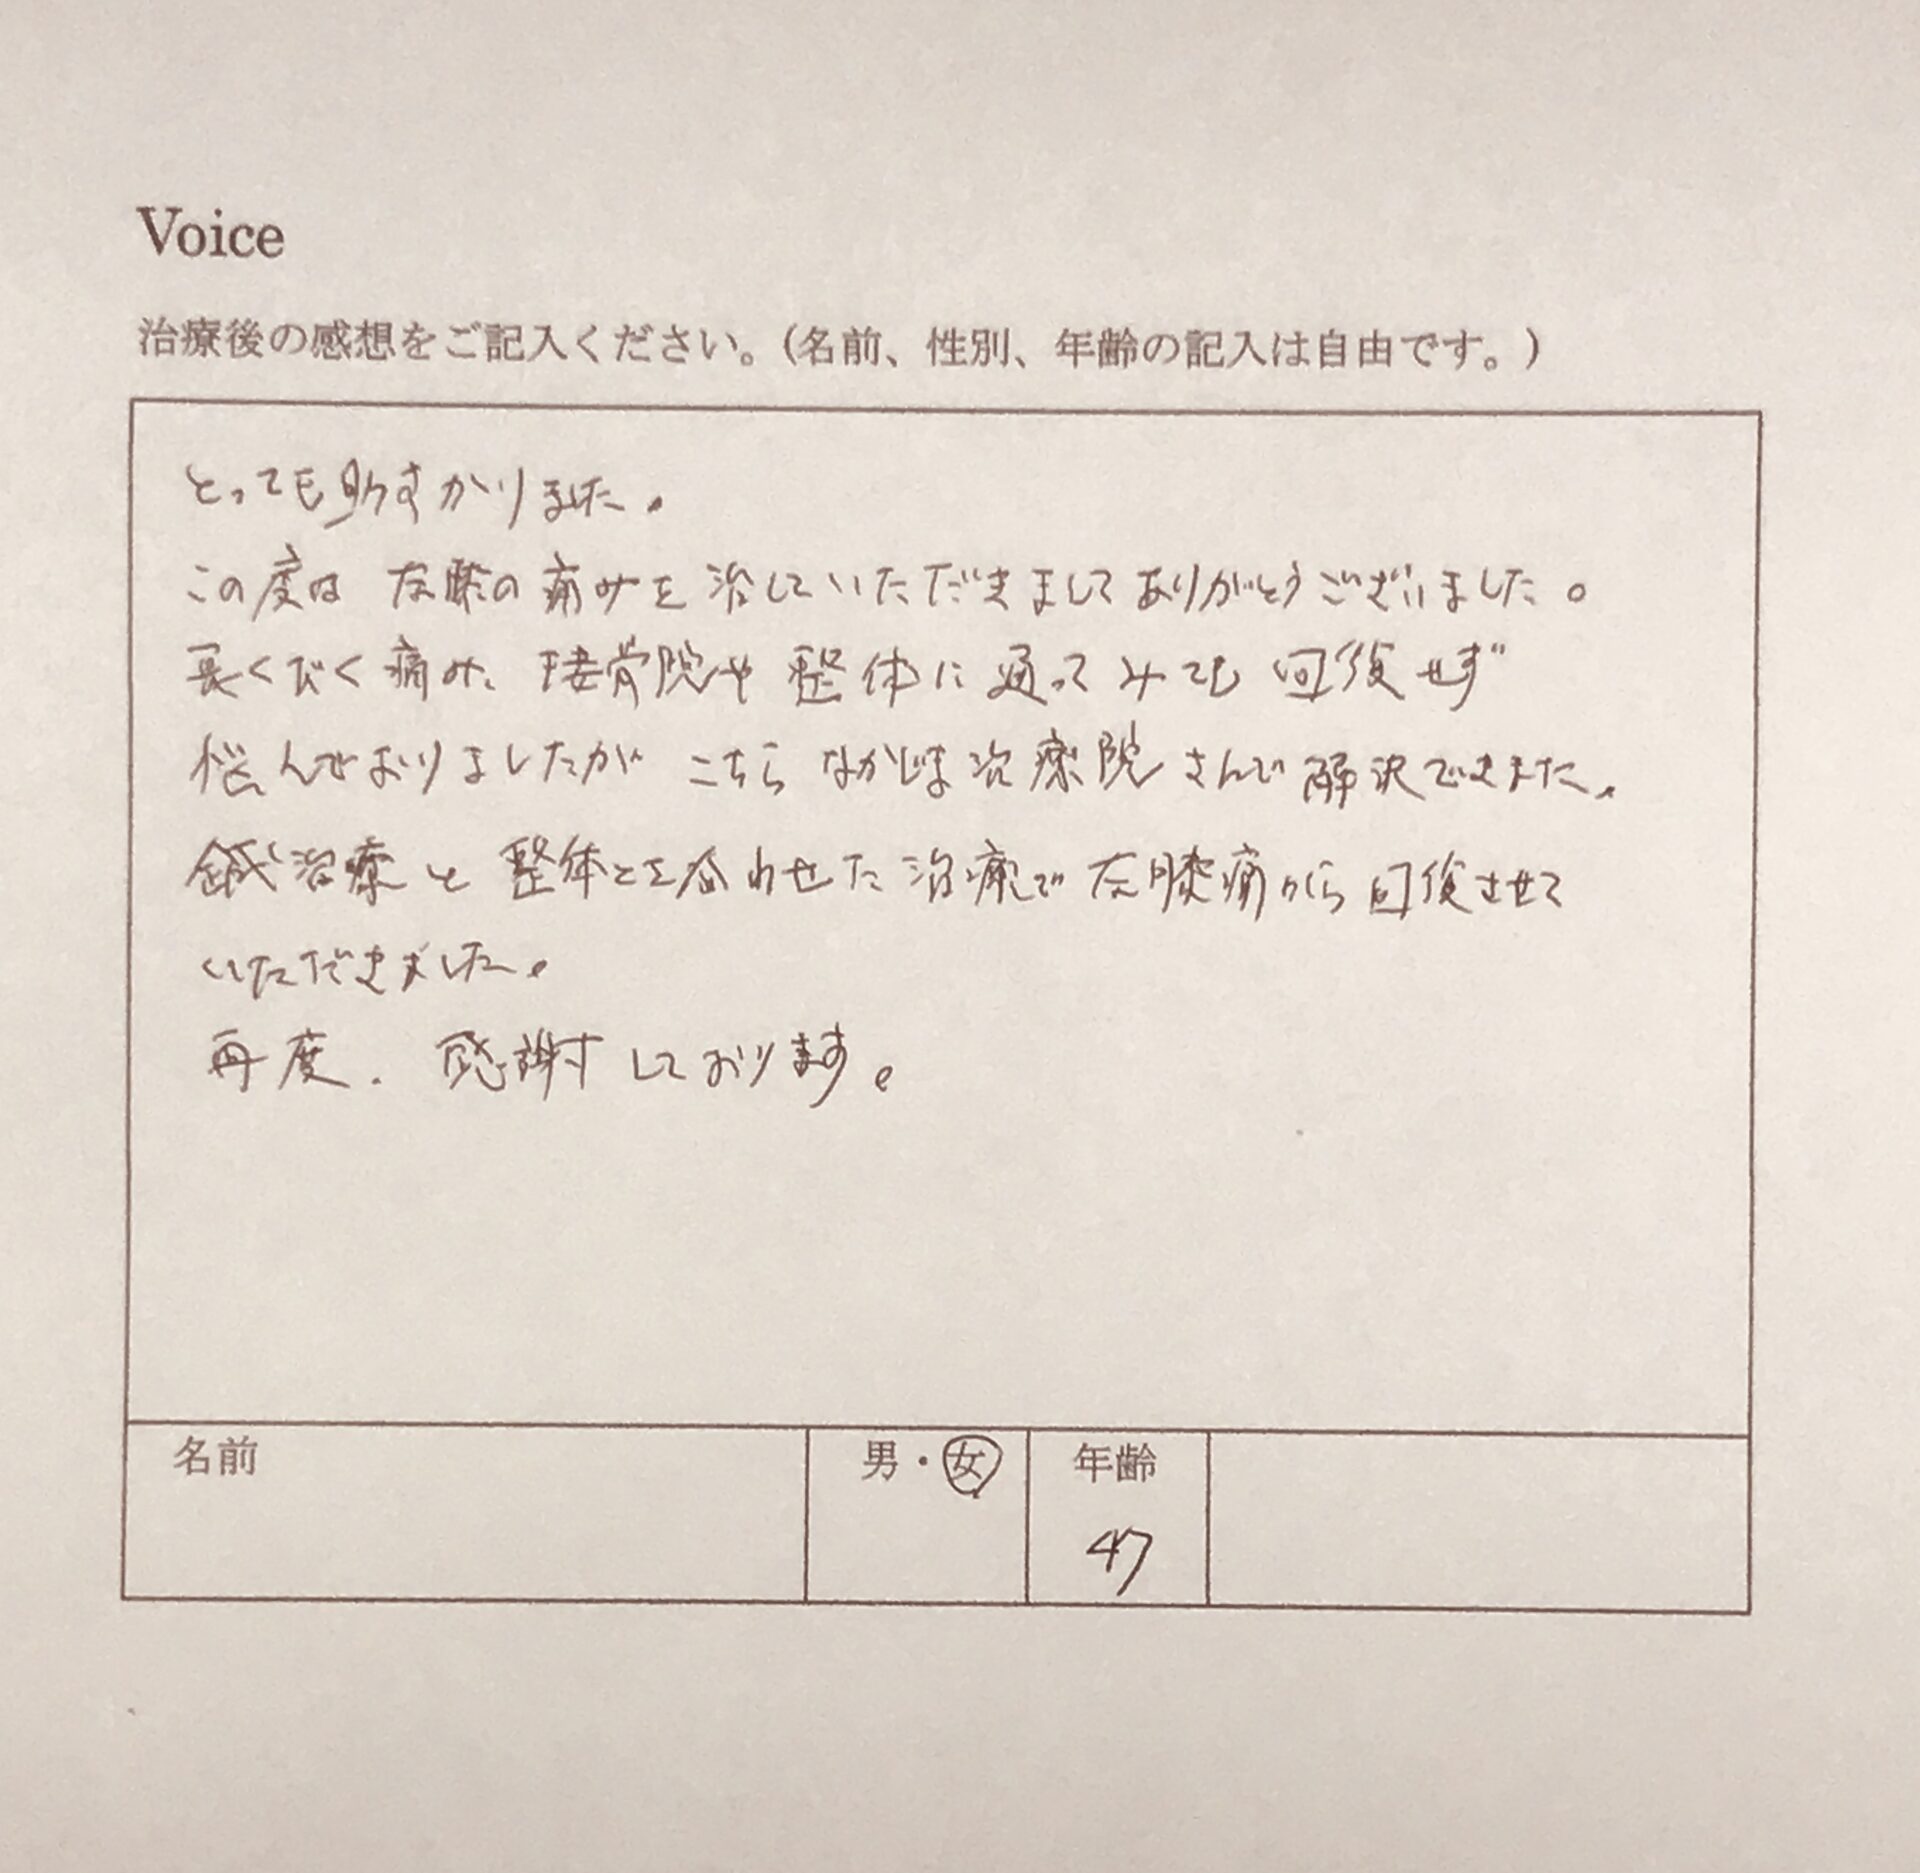 Voice
治療後の感想をご記入ください。（名前、性別、年齢の記入は自由です。）
とっても助すかりました。
この度は 左膝の痛みを治していただきましてありがとうございました。
長くびく痛み、接骨院や整体に通ってみても回復せず
悩んでおりましたが こちら なかじま治療院さんで解決できました。
鍼治療と整体とを合わせた治療で左膝痛から回復させて
いただきました。
再度、感謝しております。
名前 男・女 年齢
47